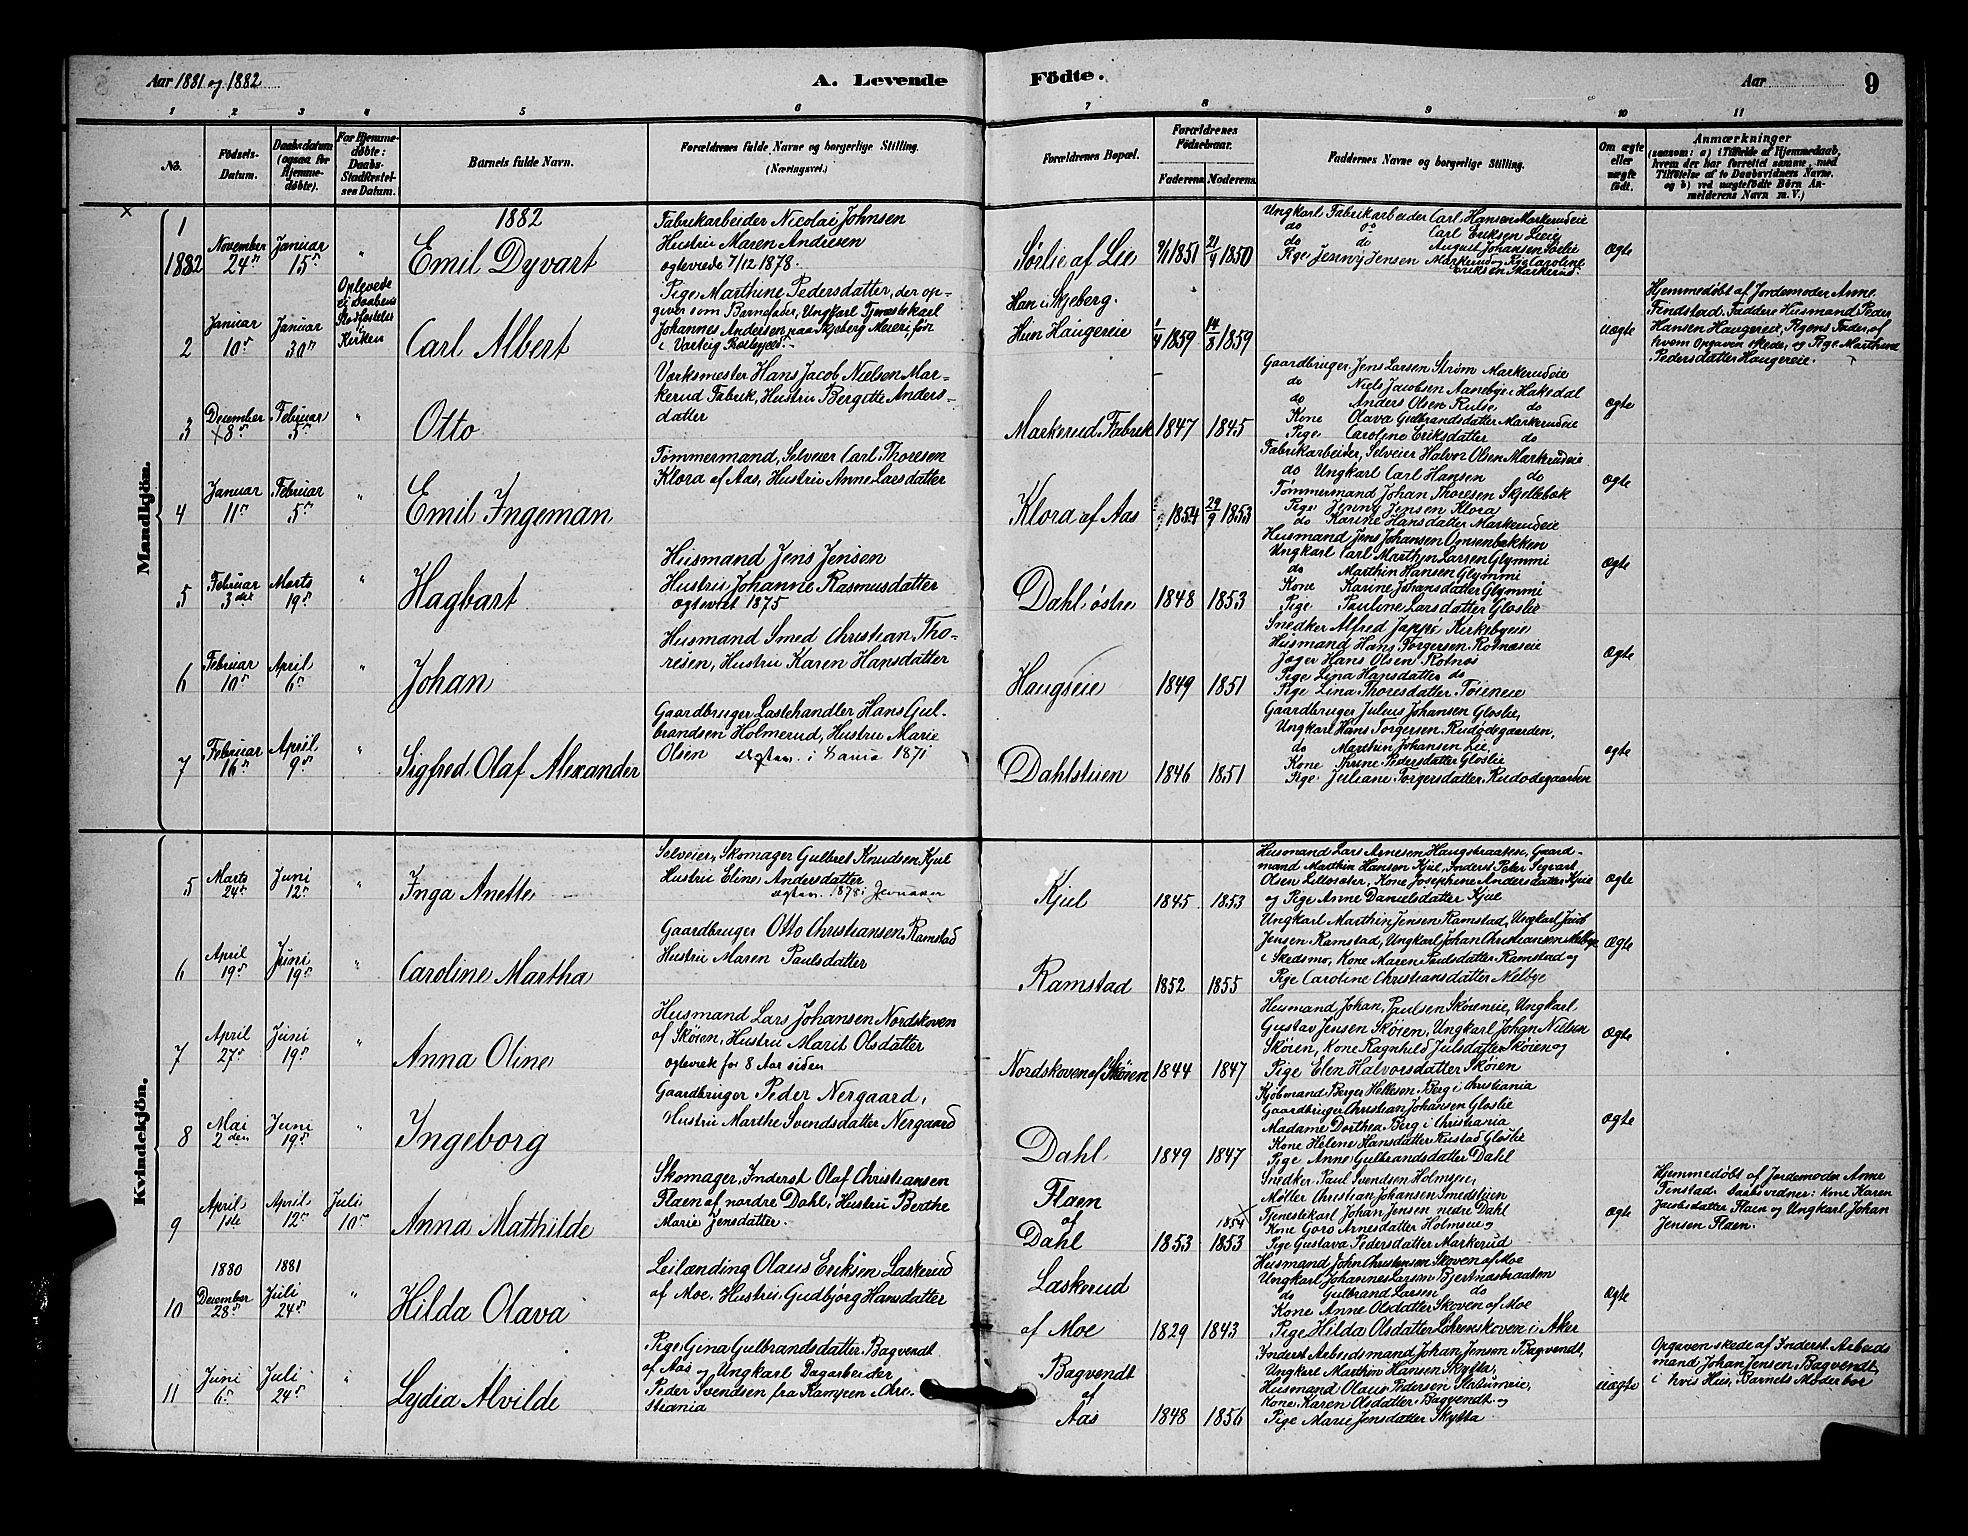 Aar 1881 og 1882
A. Levende Födte.
Aar
9
1 2 3 4 5 6 7 8 9 10 11
No.
Födsels-Datum.
Daabsdatum (ogsaa for Hjemmedöbte).
For Hjemmedöbte: Daabs-Stadfæstelses Datum.
Barnets fulde Navn.
Forældrenes fulde Navne og borgerlige Stilling. (Næringsvei.)
Forældrenes Bopæl.
Forældrenes Födselsaar.
Faderens. Moderens.
Faddernes Navne og borgerlige Stilling.
Om ægte eller uægte födt.
Anmærkninger
(saasom: a) i Tilfælde af Hjemmedaab, hvem der har forrettet samme, med Tilföielse af to Daabsvidners Navne. og b) ved uægtefödte Börn Anmelderens Navn m. V.)
Mandkjön.
1882
1
1882 November 24n Januar 15n " Emil Dyvart
Fabrikarbeider Nicolai Johnsen
Hustru Maren Andresen
ægteviede 7/12 1878.
Sørlie af Lie 1851 21/4 1850
Ungkarl Fabrikarbeider Carl Hansen Markerudeie
do do Carl Eriksen Lieie
do do August Johansen Sørlie
Pige Jenny Jensen Markerud og Pige Caroline
Eriksen Markerud
Ægte
2 Januar 10n Januar 30n
Oplevede
ei Daabens
Stadfæstelse
i Kirken
Carl Albert
Pige Marthine Pedersdatter, der op-
giver som Barnefader, Ungkarl Tjenestekarl
Johannes Andersen paa Skjeberg Meieri, fød
i Varteig
Han i Skjeberg.
Hun Haugereie 1/4 1859 14/8 1859
uægte
Hjemmedøbt af Jordemoder Anne
Findstad. Faddere Husmand Peder
Hansen Haugereie, Pigens Fader, af
hvem Opgaven skede, og Pige Marthine
Pedersdatter Haugereie.
3 December 8n Februar 5n " Otto
Værksmester Hans Jacob Nielsen Mar-
kerud Fabrik, Hustru Bergitte Anders-
datter
Markerud Fabrik 1847 1845
Gaardbruger Jens Larsen Strøm Markerudeie
do Niels Jacobsen Aanebye i Hakedal
do Anders Olsen Rulse do
Kone Olava Gulbrandsdatter Markerudeie
Pige Caroline Eriksdatter do
Ægte
4 Januar 11n Februar 5n " Emil Ingeman
Tømmermand, Selveier Carl Thoresen
Klora af Aas, Hustru Anne Larsdatter
Klora af Aas 1854 29/9 1853
Fabrikarbeider, Selveier Halvor Olsen Markerudeie
do Ungkarl Carl Hansen do
Tømmermand Johan Thoresen Skjellebæk
Pige Jenny Jensen Klora
do Karine Hansdatter Markerudeie
Ægte
5 Februar 3die Marts 19n " Hagbart
Husmand Jens Jensen
Hustru Johanne Rasmusdatter
ægteviet 1875
Dahl østre 1848 1853
Husmand Jens Johansen Omsenbækken
Ungkarl Carl Marthin Larsen Glymmi
do Marthin Hansen Glymmi
Kone Karine Johansdatter Glymmi
Pige Pauline Larsdatter Gloslie
Ægte
6 Februar 10n April 6n " Johan
Husmand Smed Christian Tho-
resen, Hustru Karen Hansdatter
Haugseie 1849 1851
Snedker Alfred Jappé Kirkebyeie
Husmand Hans Torgersen Rotnæseie
Jæger Hans Olsen Rotnæs
Pige Lina Hansdatter do
Pige Lina Thoresdatter Tøieneie
Ægte
7 Februar 16n April 9n " Sigfred Olaf Alexander
Gaardbruger Lastehandler Hans Gul-
brandsen Holmerud, Hustru Marie
Olsen 1871
Dahlstuen 1846 1851
Gaardbruger Julius Johansen Gloslie,
Ungkarl Hans Torgersen Rudødegaarden,
do Marthin Johansen Lie,
Kone Thrine Pedersdatter Gloslie
Pige Juliane Torgersdatter Rudødegaarden
ægte
Kvindekjön.
5 Marts 24n Juni 12n " Inga Anette
Selveier, Skomager Gulbret Knudsen Kjul
Hustru Eline Andersdatter
1878 i Jevnaker
Kjul 1845 1853
Husmand Lars Arnesen Haugsbraaten, Gaard-
mand Marthin Hansen Kjul, Inderst Peter Segvart
Olsen Lillesæter, Kone Josephine Andersdatter Kjul
og Pige Anne Danielsdatter Kjul
Ægte
6 April 19n Juni 19n " Caroline Martha
Gaardbruger Otto Christiansen Ramstad
Hustru Maren Paulsdatter
Ramstad 1852 1855
Ungkarl Marthin Jensen Ramstad, Ungkarl Jacob
Jensen Ramstad, Ungkarl Johan Christiansen Melbye
i Skedsmo, Kone Maren Paulsdatter Ramstad og
Pige Caroline Christiansdatter Melbye
Ægte
7 April 27n Juni 19n " Anna Oline
Husmand Lars Johansen Nordskoven
af Skøien, Hustru Marit Olsdatter
ægteviet for 8 Aar siden
Nordskoven af Skøien 1844 1847
Husmand Johan Paulsen Skøieneie, Ungkarl
Gustav Jensen Skøien, Ungkarl Johan Nielsen
Skøien, Kone Ragnhild Julsdatter Skøien og
Pige Elen Halvorsdatter Skøien
Ægte
8 Mai 2den Juni 19n " Ingeborg
Gaardbruger Peder Nergaard,
Hustru Marthe Svendsdatter Nergaard
Dahl 1849 1847
Kjøbmand Berger Hellesen Berg i Christiania
Gaardbruger Christian Johansen Gloslie
Madame Dorthea Berg i Christiania
Kone Helene Hansdatter Rustad Gloslie
Pige Anne Gulbrandsdatter Dahl
Ægte
9 April 1ste April 12n Juli 10n Anna Mathilde
Skomager, Inderst Olaf Christiansen
Flaen af nordre Dahl, Hustru Berthe
Marie Jensdatter.
Flaen
af
Dahl 1853 1854 1853
Snedker Paul Svendsen Holmseie,
Møller Christian Johansen Smedstuen
Tjenestekarl Johan Jensen nedre Dahl
Kone Goro Arnesdatter Holmseie og
Pige Gustava Pedersdatter Markerud
ægte
Hjemmedøbt af Jordemoder Anne
Finstad. Daabsvidner: Kone Karen
Jacobsdatter Flaen og Ungkarl Johan
Jensen Flaen.
10 1880 December 28n 1881 Juli 24n " Hilda Olava
Leilænding Olaus Eriksen Laskerud
af Moe, Hustru Gudbjorg Hansdatter
Laskerud
af Moe 1829 1843
Husmand John Christensen Skoven af Moe
Ungkarl Johannes Larsen Bjertnæsbraaten
do Gulbrand Larsen do
Kone Anne Olsdatter Skoven af Moe
Pige Hilda Olsdatter Lørenskoven i Aker
Ægte
11 Juni 6n Juli 24n " Lydia Alvilde
Pige Gina Gulbrandsdatter Bagvendt
af Aas og Ungkarl Dagarbeider
Peder Svendsen fra Kampen i Chri-
stiania
Bagvendt
af
Aas 1848 1856
Inderst Arbeidsmand Johan Jensen Bagvendt,
Ungkarl Marthin Hansen Skytta,
Husmand Olaus Pedersen Stabumeie,
Kone Karen Olsdatter Bagvendt og
Pige Marie Jensdatter Skytta
uægte
Opgaven skede af Inderst Arbeids
mand Johan Jensen Bagvendt
i hvis Hus, Barnets Moder boe